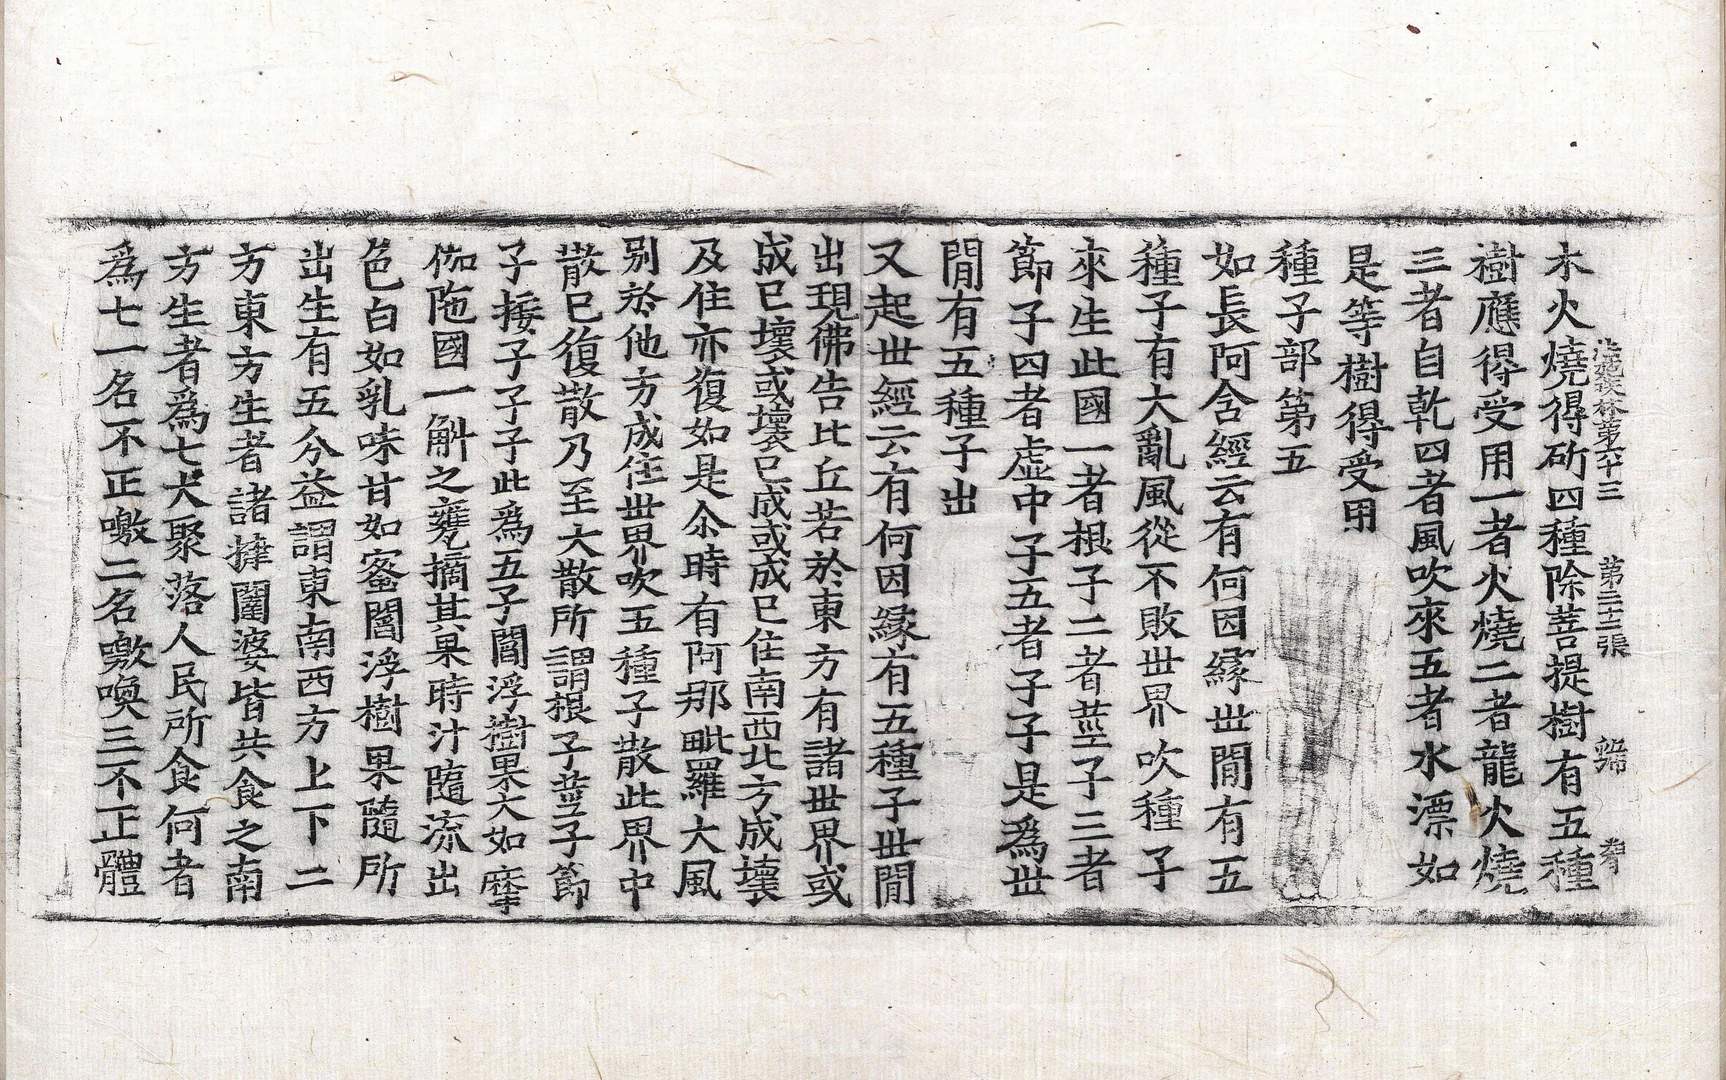 木火燒得斫四種除菩提樹有五種
法苑珠林第六十三 第二十三張 
樹應得受用一者火燒二者龍火燒
三者自乾四者風吹來五者水漂如
是等樹得受用
種子部第五
如長阿含經云有何因緣世閒有五
種子有大亂風從不敗世界吹種子
來生此國一者根子二者莖子三者
節子四者虛中子五者子子是爲世
閒有五種子出
又起世經云有何因緣有五種子世閒
出現佛告比丘若於東方有諸世界或
成已壞或壞已成或成已住南西北方成壞
及住亦復如是尒時有阿那毗羅大風
别於他方成住世界吹五種子散此界中
散已復散乃至大散所謂根子莖子節
子接子子子此爲五子閻浮樹果大如摩
伽陁國一斛之甕摘其果時汁隨流出
色白如乳味甘如蜜閻浮樹果隨所
出生有五分益謂東南西方上下二
方東方生者諸揵闥婆皆共食之南
方生者爲七大聚落人民所食何者
爲七一名不正噭二名噭喚三不正體